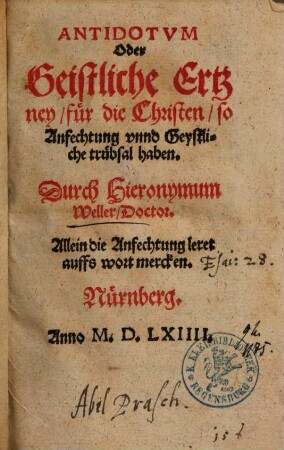 ANTIDOTVM
Oder
Geistliche Ertz
ney / für die Christen / so
Anfechtung vnnd Geystli-
che trübsal haben.
Durch Hieronymum
Weller / Doctor.
Allein die Anfechtung leret
auffs wort mercken. Esai: 28.
Nürnberg.
Anno M. D. LXIIII.
K. KREIS-BIBLIOTHEK
REGENSBURG
Abel Prasch.